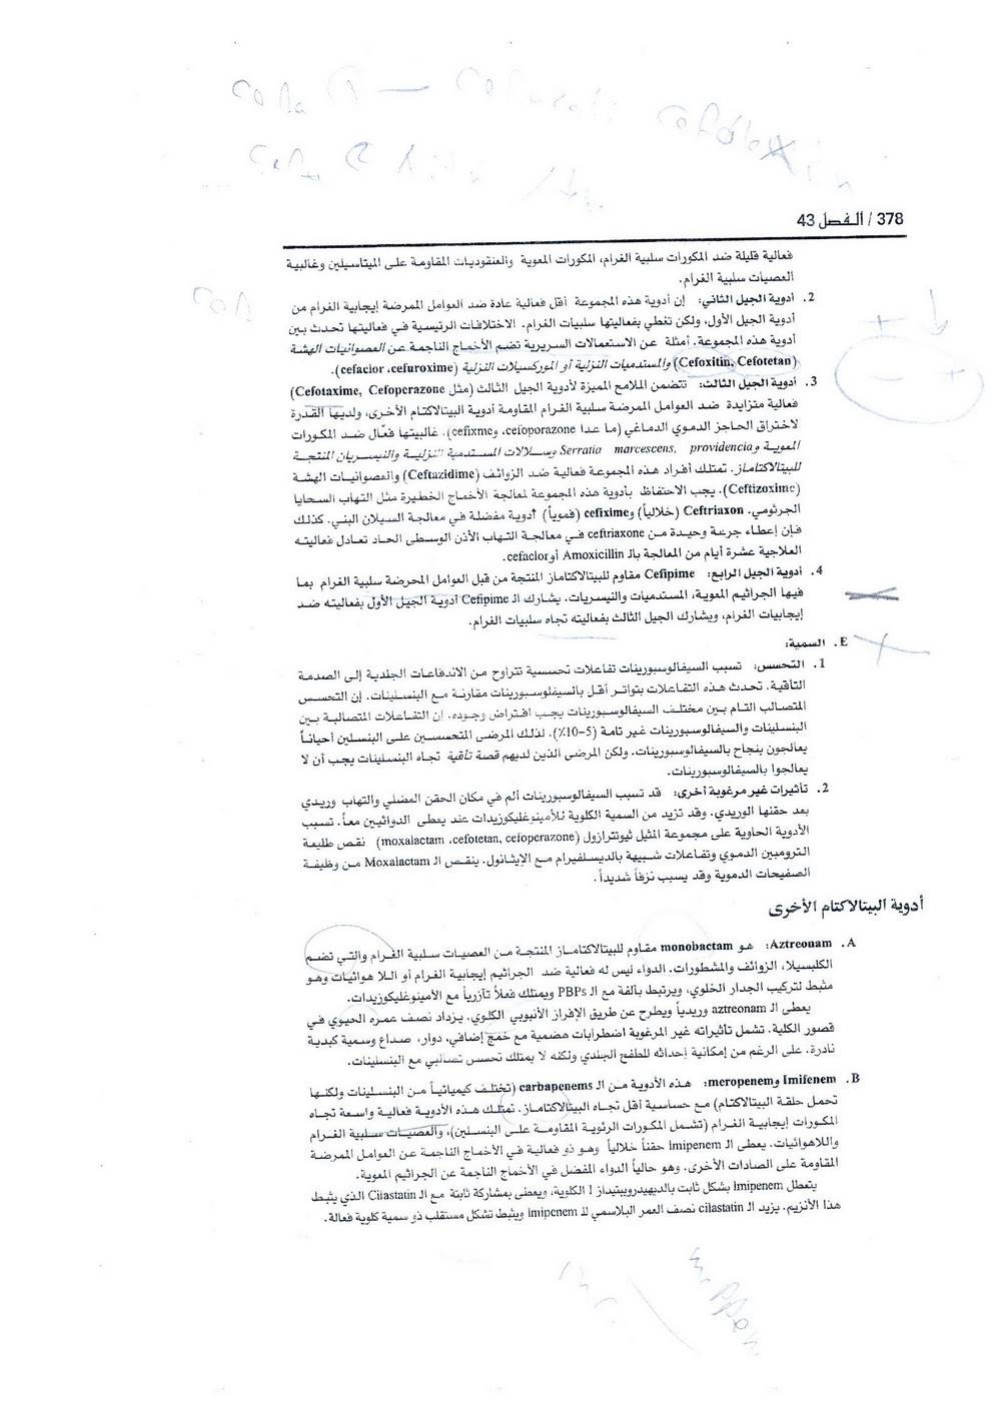 378 / الفصل 43
فعالية قليلة ضد المكورات سلبية الغرام، المكورات المعوية والعنقوديات المقاومة على الميتاسيلين وغالبية
العصيات سلبية الغرام.
2. أدوية الجيل الثاني: إن أدوية هذه المجموعة أقل فعالية عادة ضد العوامل الممرضة إيجابية الغرام من
أدوية الجيل الأول، ولكن تغطي بفعاليتها سلبيات الغرام. الاختلافات الرئيسية في فعاليتها تحدث بين
أدوية هذه المجموعة. أمثلة عن الاستعمالات السريرية تضم الأخماج الناجمة عن العصوانيات الهشة
(Cefoxitin, Cefotetan) والمستدميات النزلية أو الموركسيلات النزلية (cefaclor ،cefuroxime).
3. أدوية الجيل الثالث: تتضمن الملامح المميزة لأدوية الجيل الثالث (مثل Cefotaxime, Cefoperazone)
فعالية متزايدة ضد العوامل الممرضة سلبية الغرام المقاومة أدوية البيتالاكتام الأخرى، ولديها القدرة
لاختراق الحاجز الدموي الدماغي (ما عدا cefoporazone، وcefixme). غالبيتها فعّال ضد المكورات
المعوية وSerratia marcescens, providencia وسلالات المستدمية النزلية والنيسريان المنتجة
للبيتالاكتاماز. تمتلك أفراد هذه المجموعة فعالية ضد الزوائف (Ceftazidime) والعصوانيات الهشة
(Ceftizoxime). يجب الاحتفاظ بأدوية هذه المجموعة لمعالجة الأخماج الخطيرة مثل التهاب السحايا
الجرثومي. Ceftriaxon (خلالياً) وcefixime (فموياً) أدوية مفضلة في معالجة السيلان البني. كذلك
فإن إعطاء جرعة وحيدة من ceftriaxone في معالجة التهاب الأذن الوسطى الحاد تعادل فعاليته
العلاجية عشرة أيام من المعالجة بالـ Amoxicillin أو cefaclor.
4. أدوية الجيل الرابع: Cefipime مقاوم للبيتالاكتاماز المنتجة من قبل العوامل المحرضة سلبية الغرام بما
فيها الجراثيم المعوية، المستدميات والنيسريات. يشارك الـ Cefipime أدوية الجيل الأول بفعاليته ضد
إيجابيات الغرام، ويشارك الجيل الثالث بفعاليته تجاه سلبيات الغرام.
E. السمية:
1. التحسس: تسبب السيفالوسبورينات تفاعلات تحسسية تتراوح من الاندفاعات الجلدية إلى الصدمة
التأقية. تحدث هذه التفاعلات بتواتر أقل بالسيفلوسبورينات مقارنة مع البنسلينات. إن التحسس
المتصالب التام بين مختلف السيفالوسبورينات يجب افتراض وجوده. ان التفاعلات المتصالبة بين
البنسلينات والسيفالوسبورينات غير تامة (5–10٪). لذلك المرضى المتحسسين على البنسلين أحياناً
يعالجون بنجاح بالسيفالوسبورينات. ولكن المرضى الذين لديهم قصة تأقية تجاه البنسلينات يجب أن لا
يعالجوا بالسيفالوسبورينات.
2. تأثيرات غير مرغوبة أخرى: قد تسبب السيفالوسبورينات ألم في مكان الحقن العضلي والتهاب وريدي
بعد حقنها الوريدي. وقد تزيد من السمية الكلوية للأمينوغليكوزيدات عند يعطى الدوائيين معاً. تسبب
الأدوية الحاوية على مجموعة المثيل ثيوتترازول (moxalactam ،cefotetan, cefoperazone) نقص طليعة
الترومبين الدموي وتفاعلات شبيهة بالديسلفيرام مع الإيثانول. ينقص الـ Moxalactam من وظيفة
الصفيحات الدموية وقد يسبب نزفاً شديداً.
أدوية البيتالاكتام الأخرى
A. Aztreonam: هو monobactam مقاوم للبيتالاكتاماز المنتجة من العصيات سلبية الغرام والتي تضم
الكلبسيلا، الزوائف والمشطورات. الدواء ليس له فعالية ضد الجراثيم إيجابية الغرام أو اللا هوائيات وهو
مثبط لتركيب الجدار الخلوي، ويرتبط بألفة مع الـ PBPs ويمتلك فعلاً تآزرياً مع الأمينوغليكوزيدات.
يعطى الـ aztreonam وريدياً ويطرح عن طريق الإفراز الأنبوبي الكلوي. يزداد نصف عمره الحيوي في
قصور الكلية. تشمل تأثيراته غير المرغوبة اضطرابات هضمية مع خمج إضافي، دوار، صداع وسمية كبدية
نادرة. على الرغم من إمكانية إحداثه للطفح الجلدي ولكنه لا يمتلك تحسس تصالبي مع البنسلينات.
B. Imifenem وmeropenem: هذه الأدوية من الـ carbapenems (تختلف كيميائياً من البنسلينات ولكنها
تحمل حلقة البيتالاكتام) مع حساسية أقل تجاه البيتالاكتاماز. تمتلك هذه الأدوية فعالية واسعة تجاه
المكورات إيجابية الغرام (تشمل المكورات الرئوية المقاومة على البنسلين)، والعصيات سلبية الغرام
واللاهوائيات. يعطى الـ Imipenem حقناً خلالياً وهو ذو فعالية في الأخماج الناجمة عن العوامل الممرضة
المقاومة على الصادات الأخرى. وهو حالياً الدواء المفضل في الأخماج الناجمة عن الجراثيم المعوية.
يتعطل Imipenem بشكل ثابت بالديهيدروبيتيداز I الكلوية، ويعطى بمشاركة ثابتة مع الـ Cilastatin الذي يثبط
هذا الأنزيم. يزيد الـ cilastatin نصف العمر البلاسمي للـ imipenem ويثبط تشكل مستقلب ذو سمية كلوية فعالة.